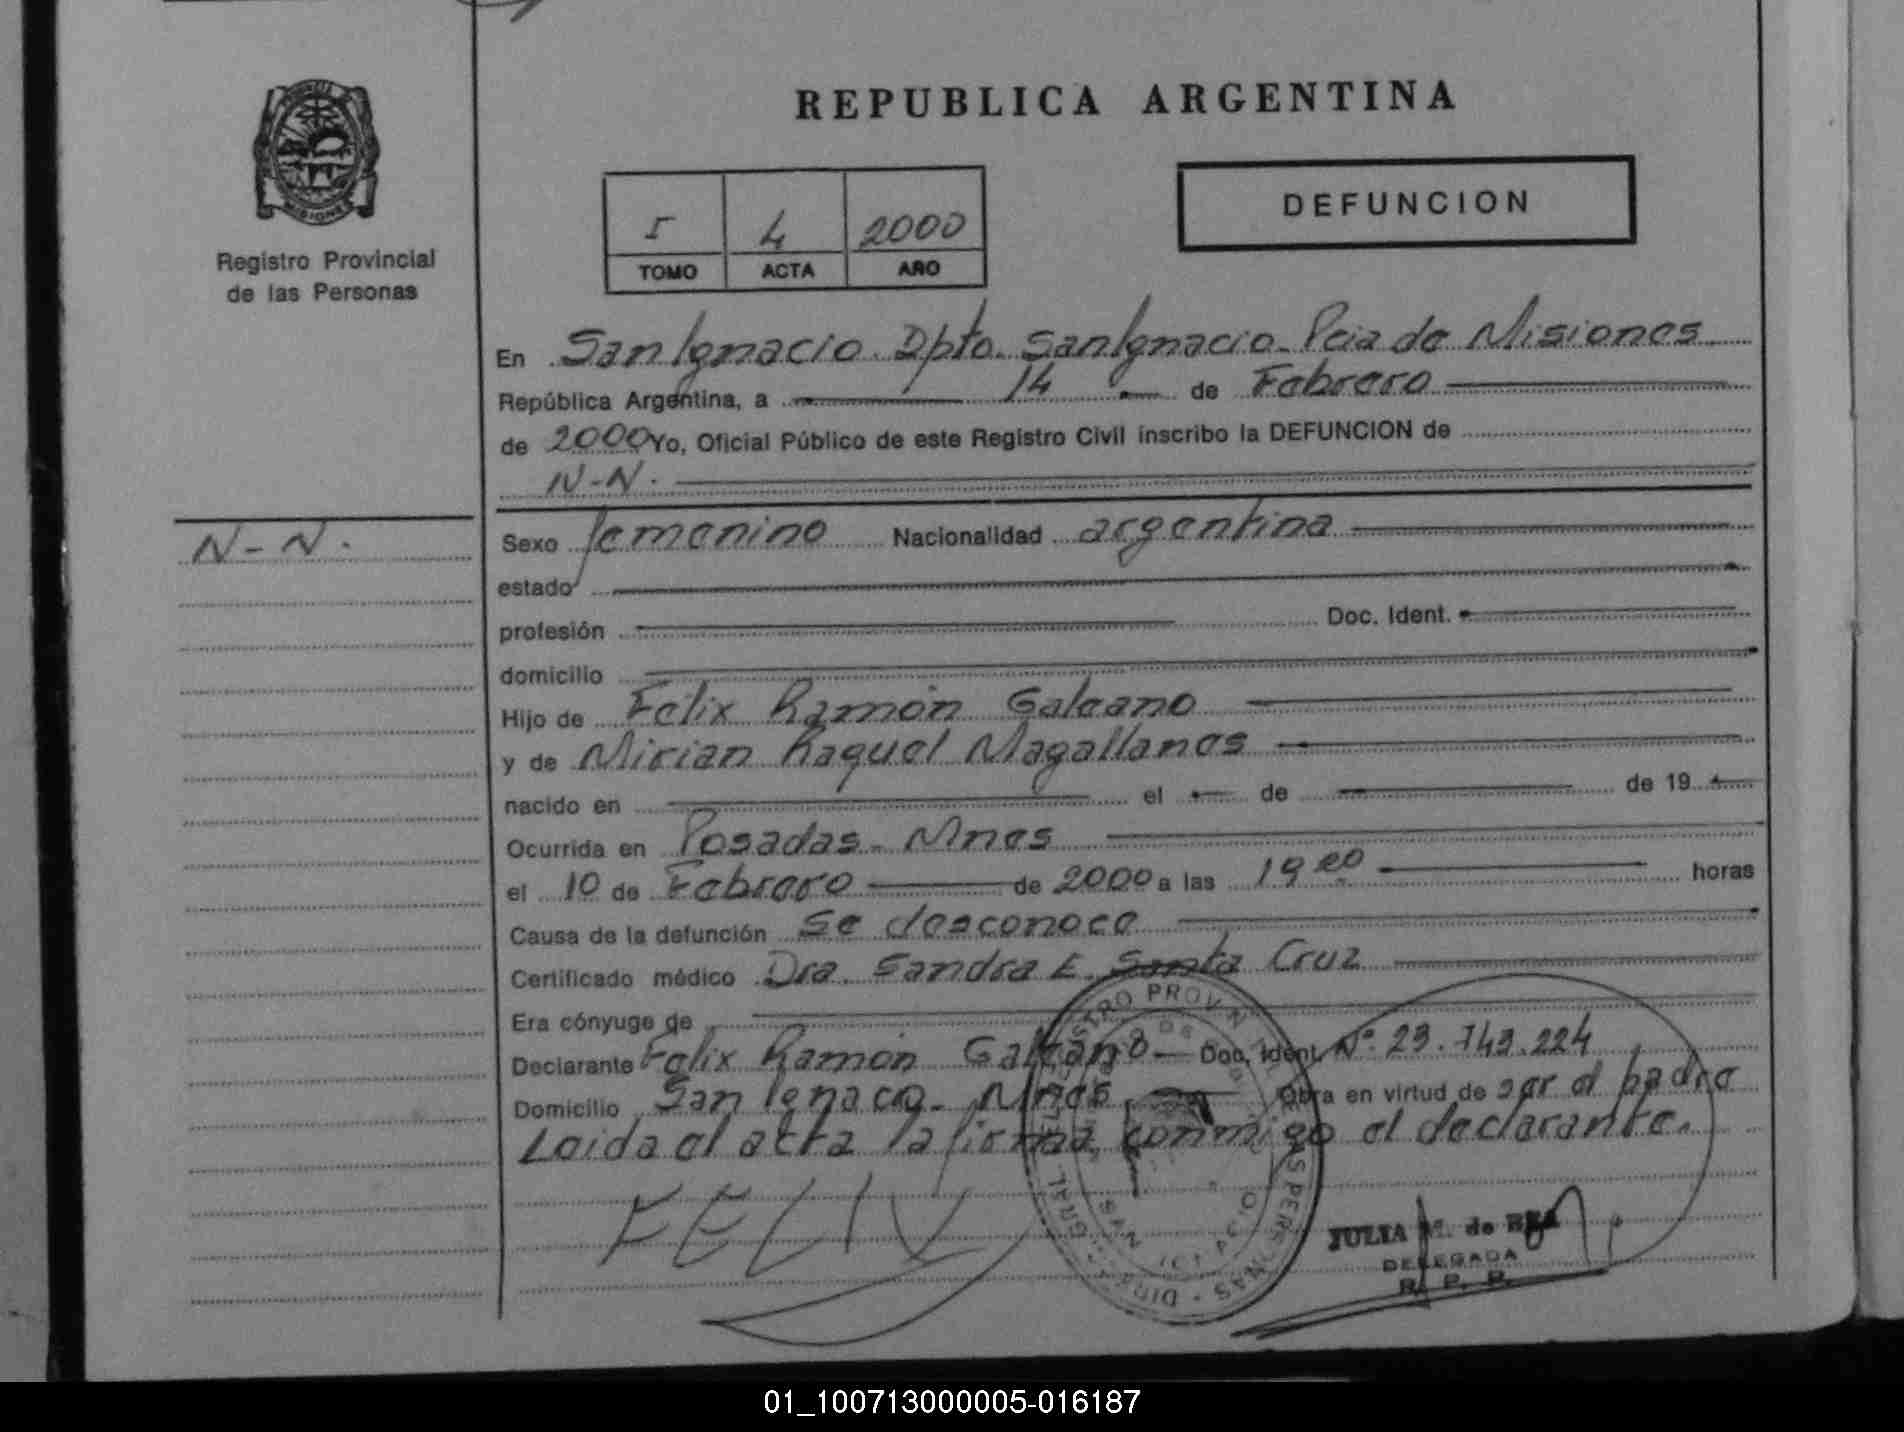 REPUBLICA ARGENTINA
MISIONES
Registro Provincial
de las Personas
I 4 2000
TOMO ACTA AÑO
DEFUNCION
En San Ignacio. Dpto. San Ignacio. Pcia de Misiones
República Argentina, a 14 de Febrero
de 2000 Yo, Oficial Público de este Registro Civil inscribo la DEFUNCION de
N-N.
N-N.
Sexo femenino Nacionalidad argentina
estado
profesión Doc. Ident.
domicilio
Hijo de Felix Ramón Galeano
y de Mirian Raquel Magallanes
nacido en el de de 19
Ocurrida en Posadas. Mnes
el 10 de Febrero de 2000 a las 19 20 horas
Causa de la defunción Se desconoce
Certificado médico Dra. Sandra E. Santa Cruz
Era cónyuge de
Declarante Felix Ramón Galeano Doc. Ident. Nº 23.743.224
Domicilio San Ignacio. Mnes Obra en virtud de ser el padre
Leida el acta la firma conmigo el declarante.
FELIX
JULIA M. de
DELEGADA
R. P. P.
01_100713000005-016187